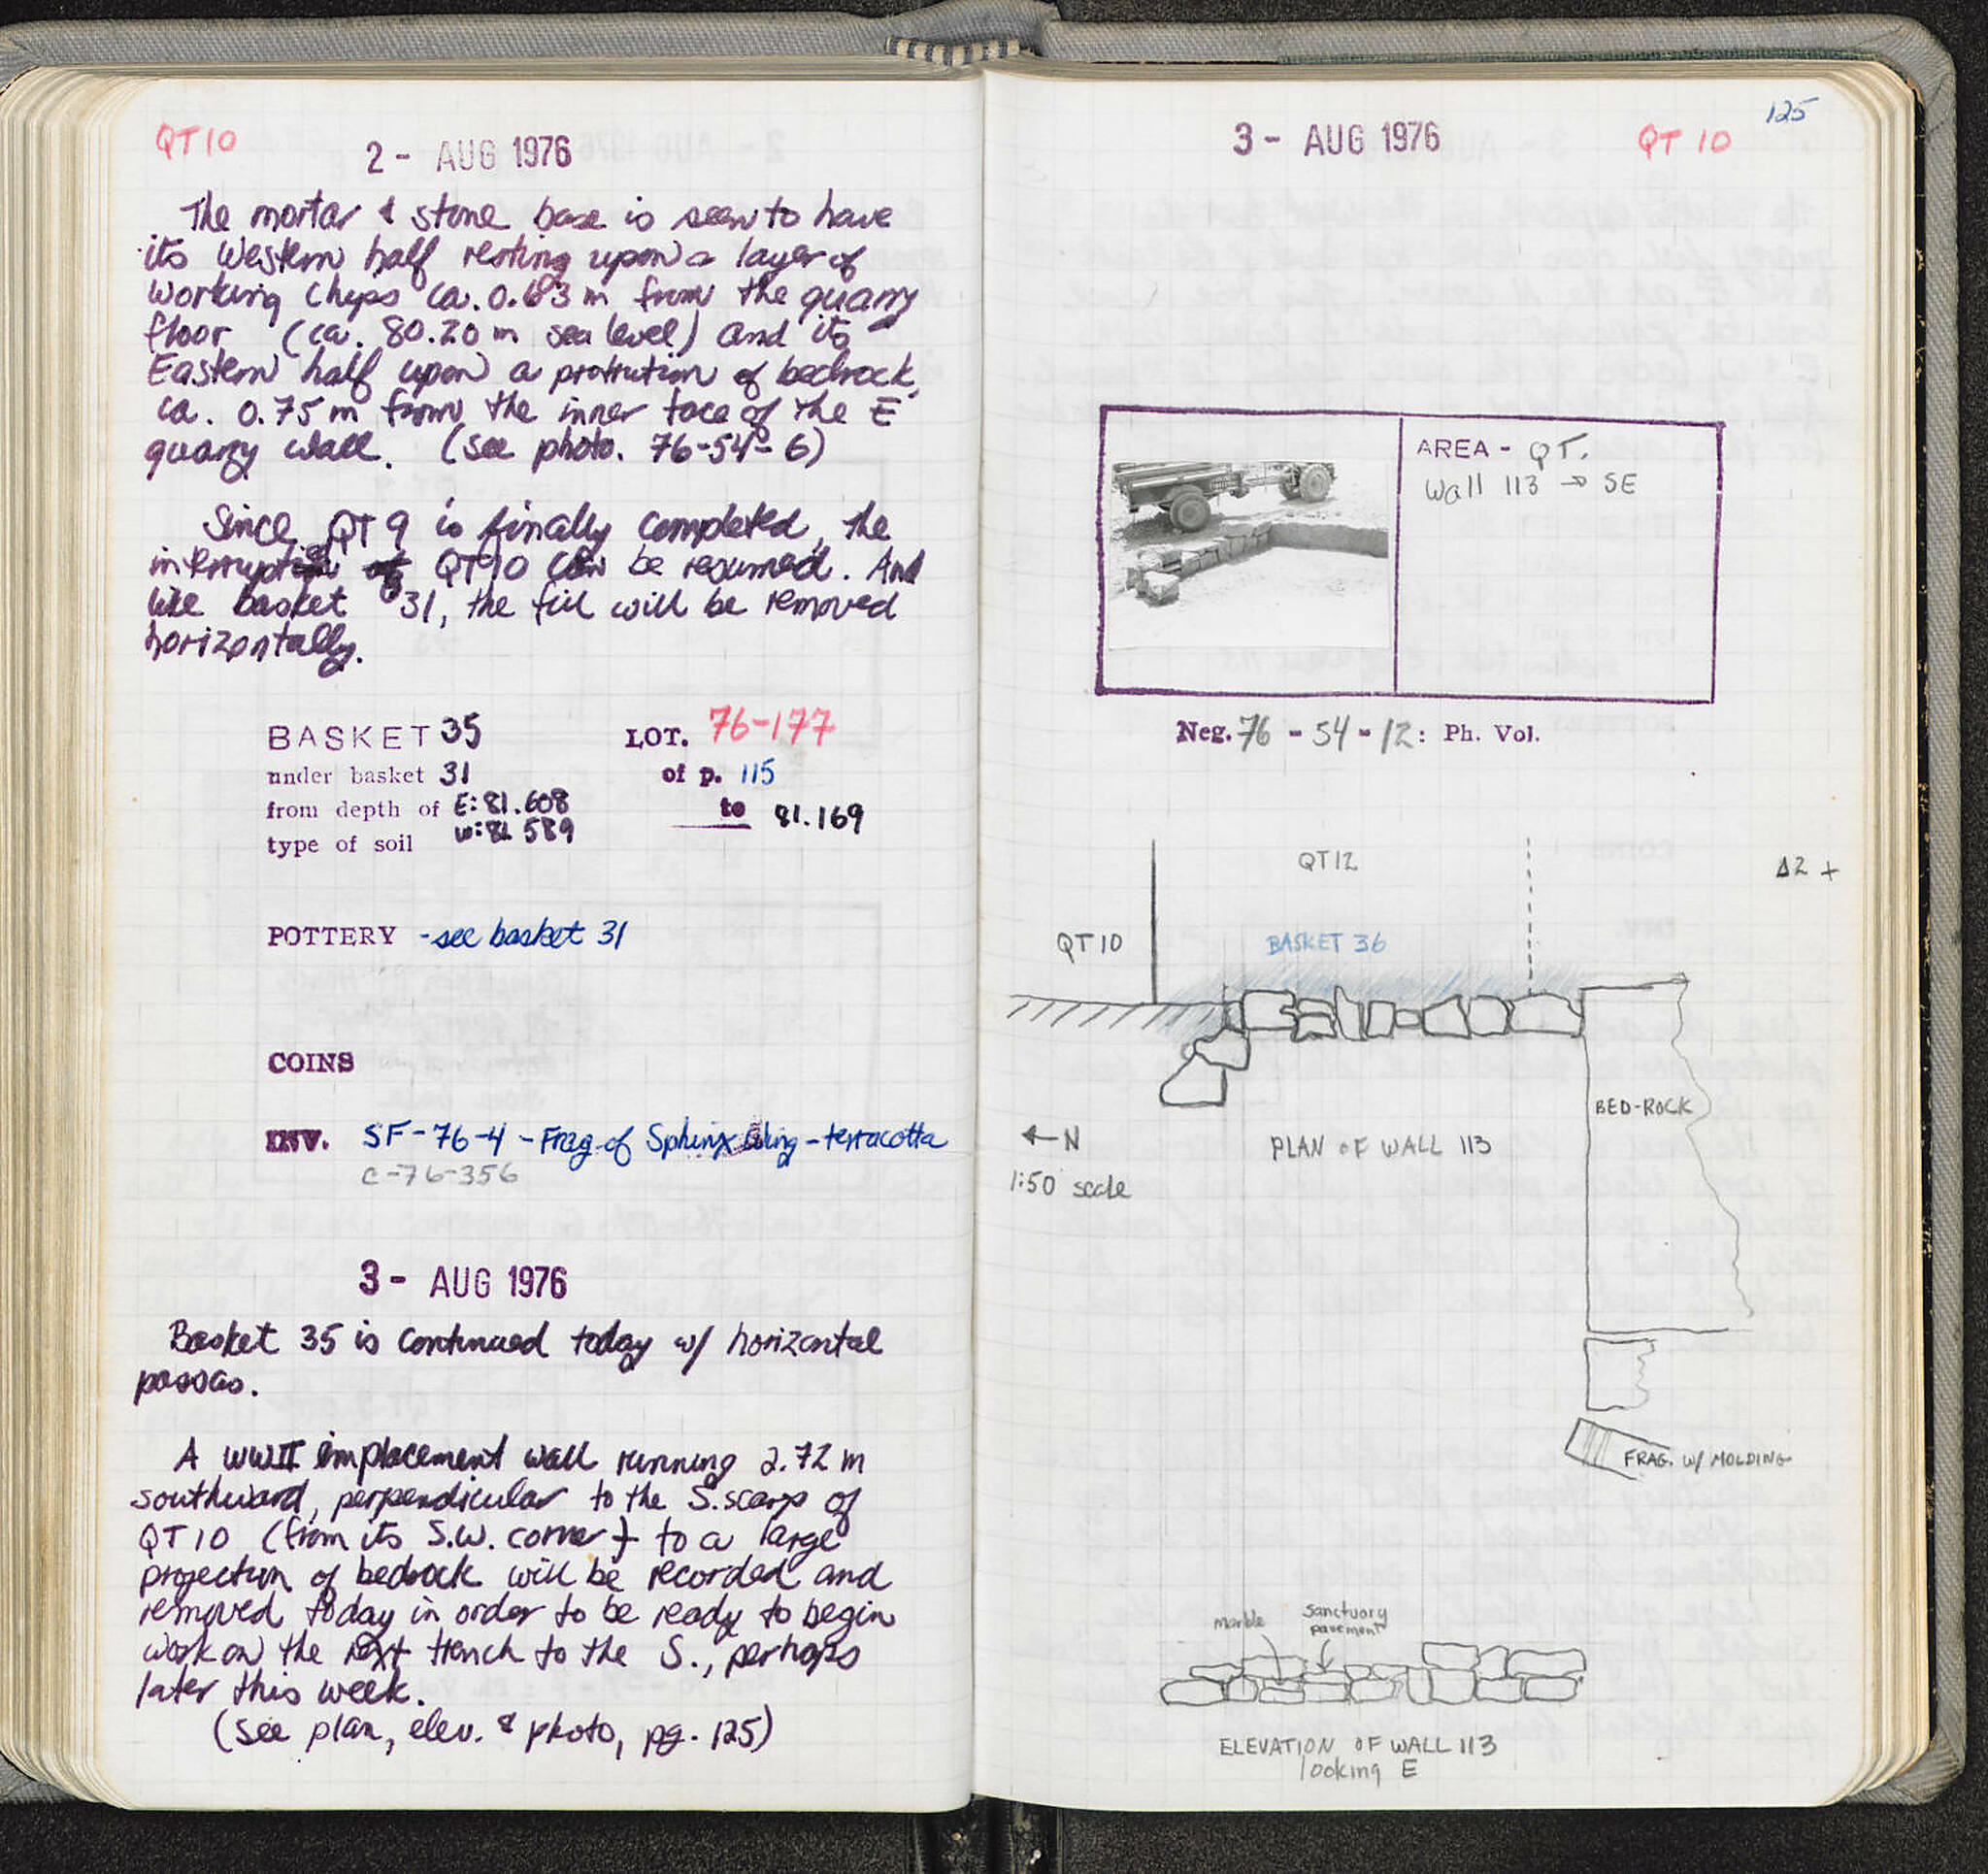 QT10
2- AUG 1976
The mortar & stone base is seen to have
its Western half resting upon a layer of
working chips ca. 0.63 m from the quarry
floor (ca. 80.20 m sea level) and its
Eastern half upon a protrution of bedrock,
ca. 0.75 m from the inner face of the E
quarry wall. (see photo. 76-54-6)
Since QT9 is finally completed, the
interrupted QT10 can be resumed. And
like basket 31, the fill will be removed
horizontally.
BASKET 35 LOT. 76-177
under basket 31 of p. 115
from depth of E: 81.608 to 81.169
W: 81.589
type of soil
POTTERY - see basket 31
COINS
INV. SF-76-4 - Frag. of Sphinx Wing - terracotta
C-76-356
3- AUG 1976
Basket 35 is continued today w/ horizontal
passes.
A WWII implacement wall running 2.72 m
southward, perpendicular to the S. scarp of
QT10 (from its S.W. corner) to a large
projection of bedrock will be recorded and
removed today in order to be ready to begin
work on the next trench to the S., perhaps
later this week.
(see plan, elev. & photo, pg. 125)
125
3- AUG 1976
QT 10
AREA - QT.
Wall 113 → SE
Neg. 76 - 54 - 12: Ph. Vol.
QT12
Δ2 +
QT10
BASKET 36
BED-ROCK
← N
PLAN OF WALL 113
1:50 scale
FRAG. W/ MOLDING
marble
sanctuary
pavement
ELEVATION OF WALL 113
looking E